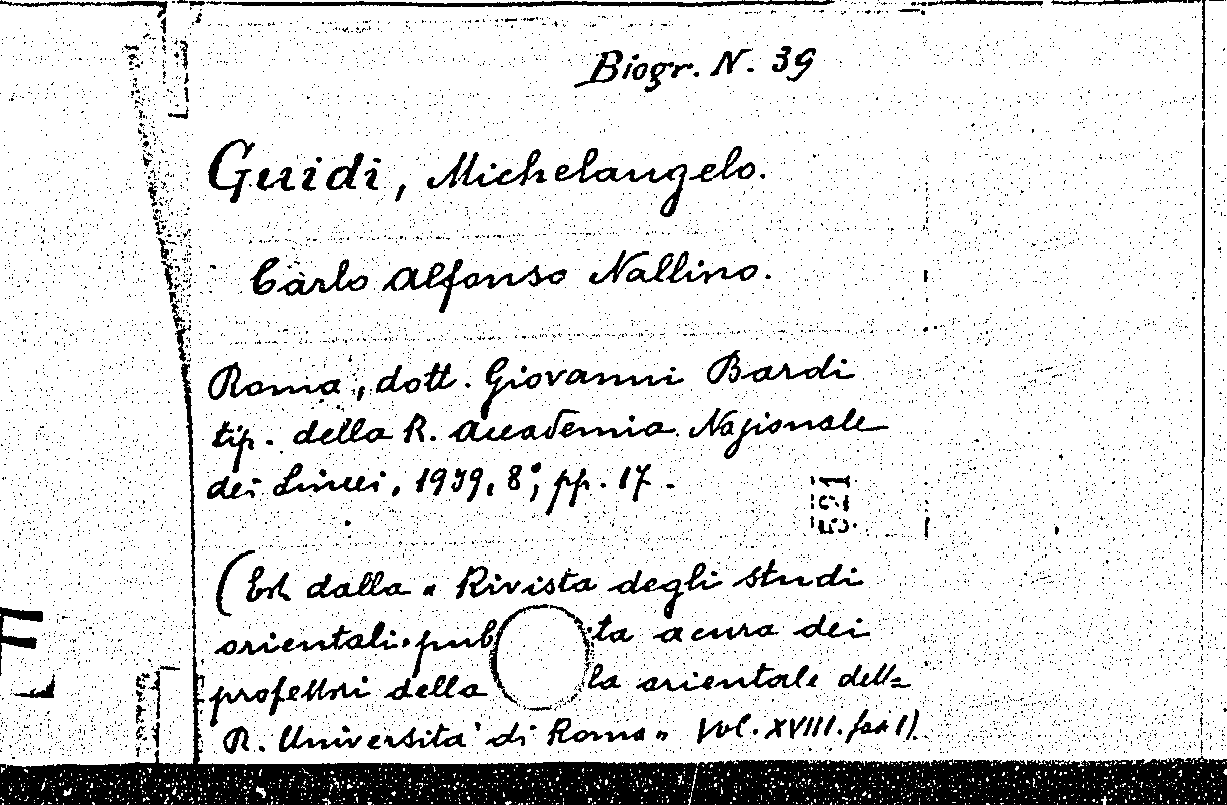 Biogr. N. 39
Guidi, Michelangelo.
Carlo Alfonso Nallino.
Roma, dott. Giovanni Bardi
tip. della R. Accademia Nazionale
dei Lincei, 1939, 8°, pp. 17.
521
(Est dalla " Rivista degli studi
orientali. pub ta a cura dei
professori della la orientale della
R. Università di Roma " Vol. XVIII. fas 1).